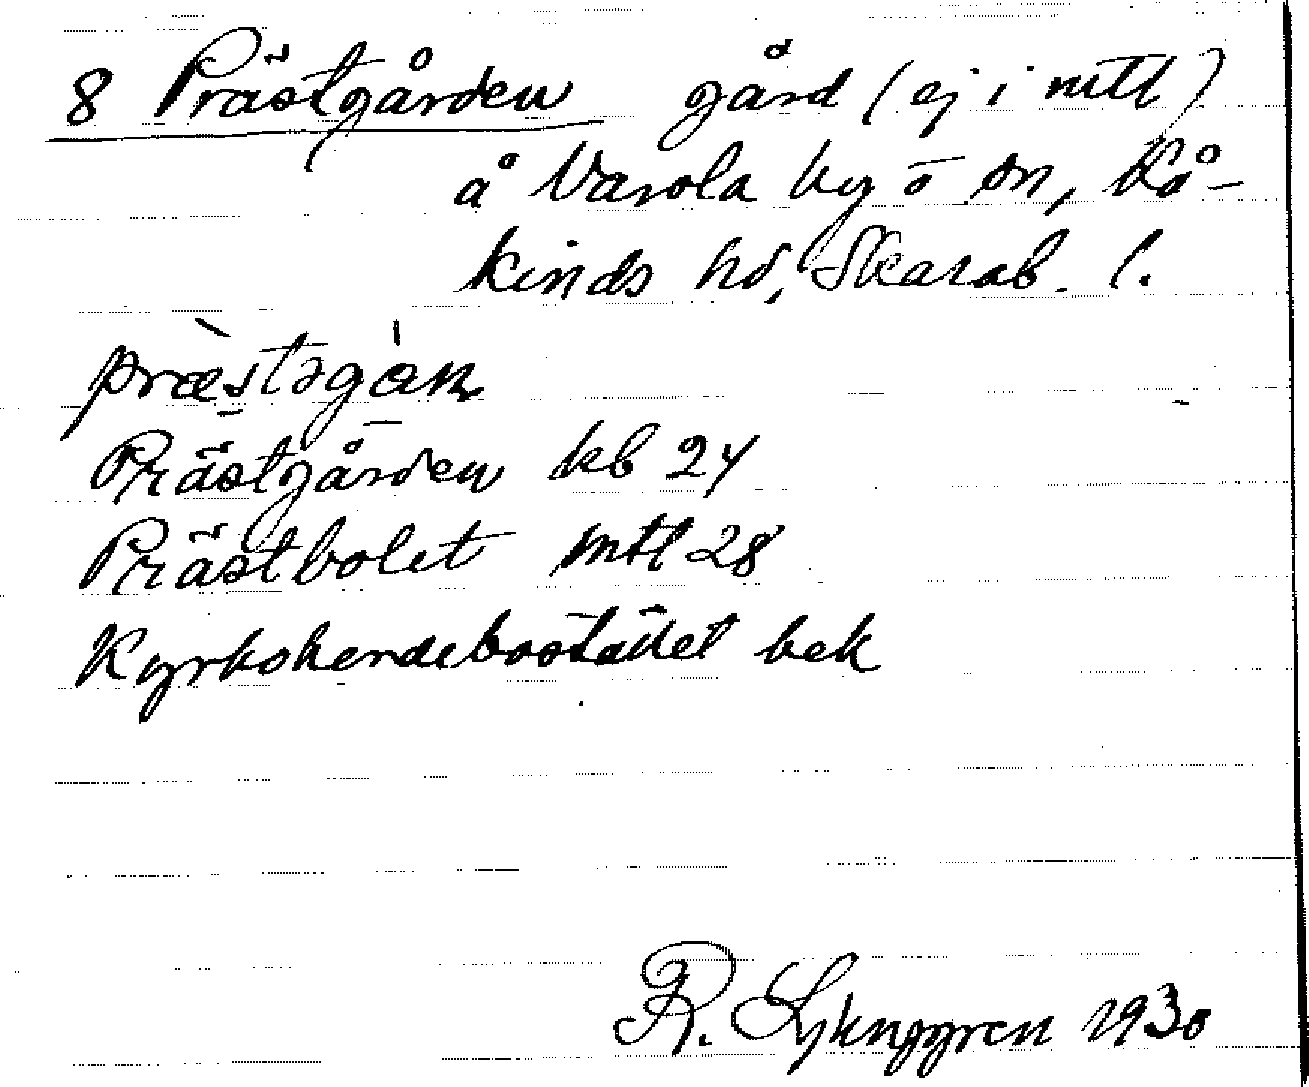 8 Prästgården gård (ej i mtl)
å Varola by o sn, Kå-
kinds hd, Skarab. l.
præ̀stəgá̱n
Prästgården kb 24
Prästbolet mtl 28
Kyrkoherdebostället bek
R. Ljunggren 1930